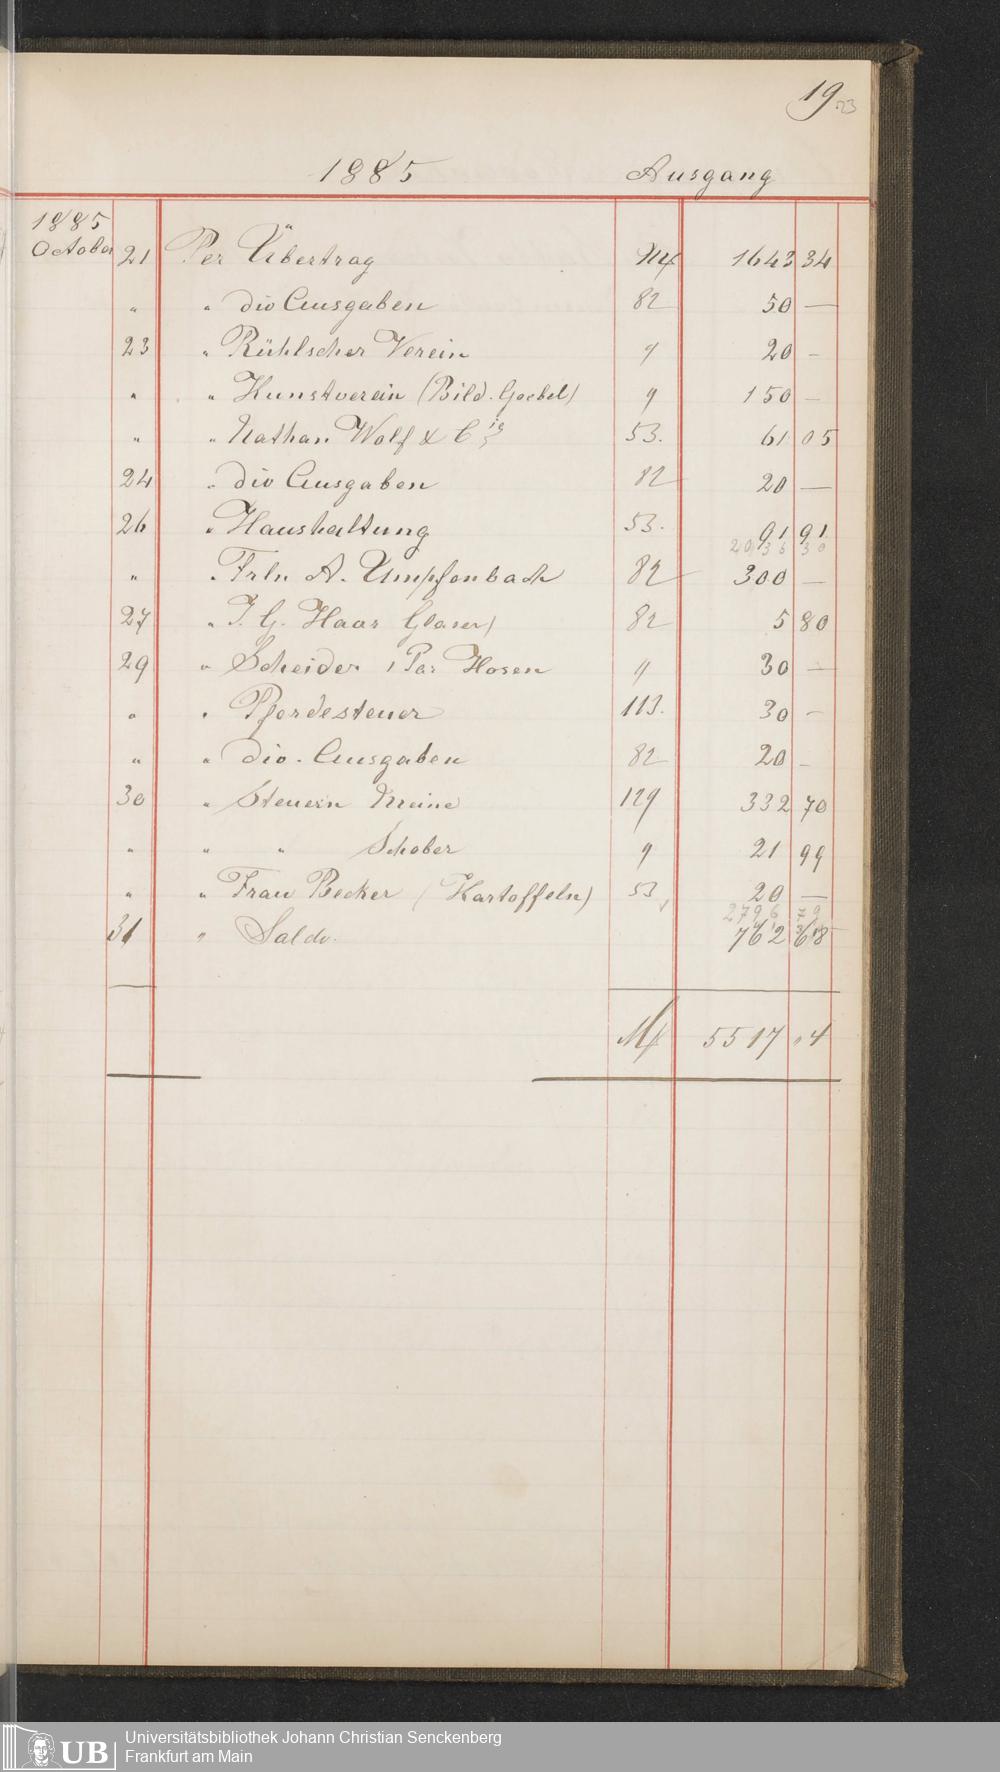 19 23
1885 Ausgang
1885
October 21 Per Übertrag M 1643 34
" " div Ausgaben 82 50 —
23 " Rühlscher Verein " 20 —
" " Kunstverein (Bild. Goebel) " 150 —
" " Nathan Wolf & Cie 53. 61 05
24 " div Ausgaben 82 20 —
26 " Haushaltung 53. 91 91
2036 30
" " Frln A. Umpfenbach 82 300 —
27 " J. G. Haas Glaser) 82 5 80
29 " Scheider 1 Par Hosen " 30 —
" " Pferdesteuer 113. 30 —
" " div. Ausgaben 82 20 —
30 " Steuern Meine 129 332 70
" " " Schober " 21 99
" " Frau Becker (Kartoffeln) 53 20 —
2796 79
31 " Saldo.
M 5517 "4
Universitätsbibliothek Johann Christian Senckenberg
Frankfurt am Main
UB